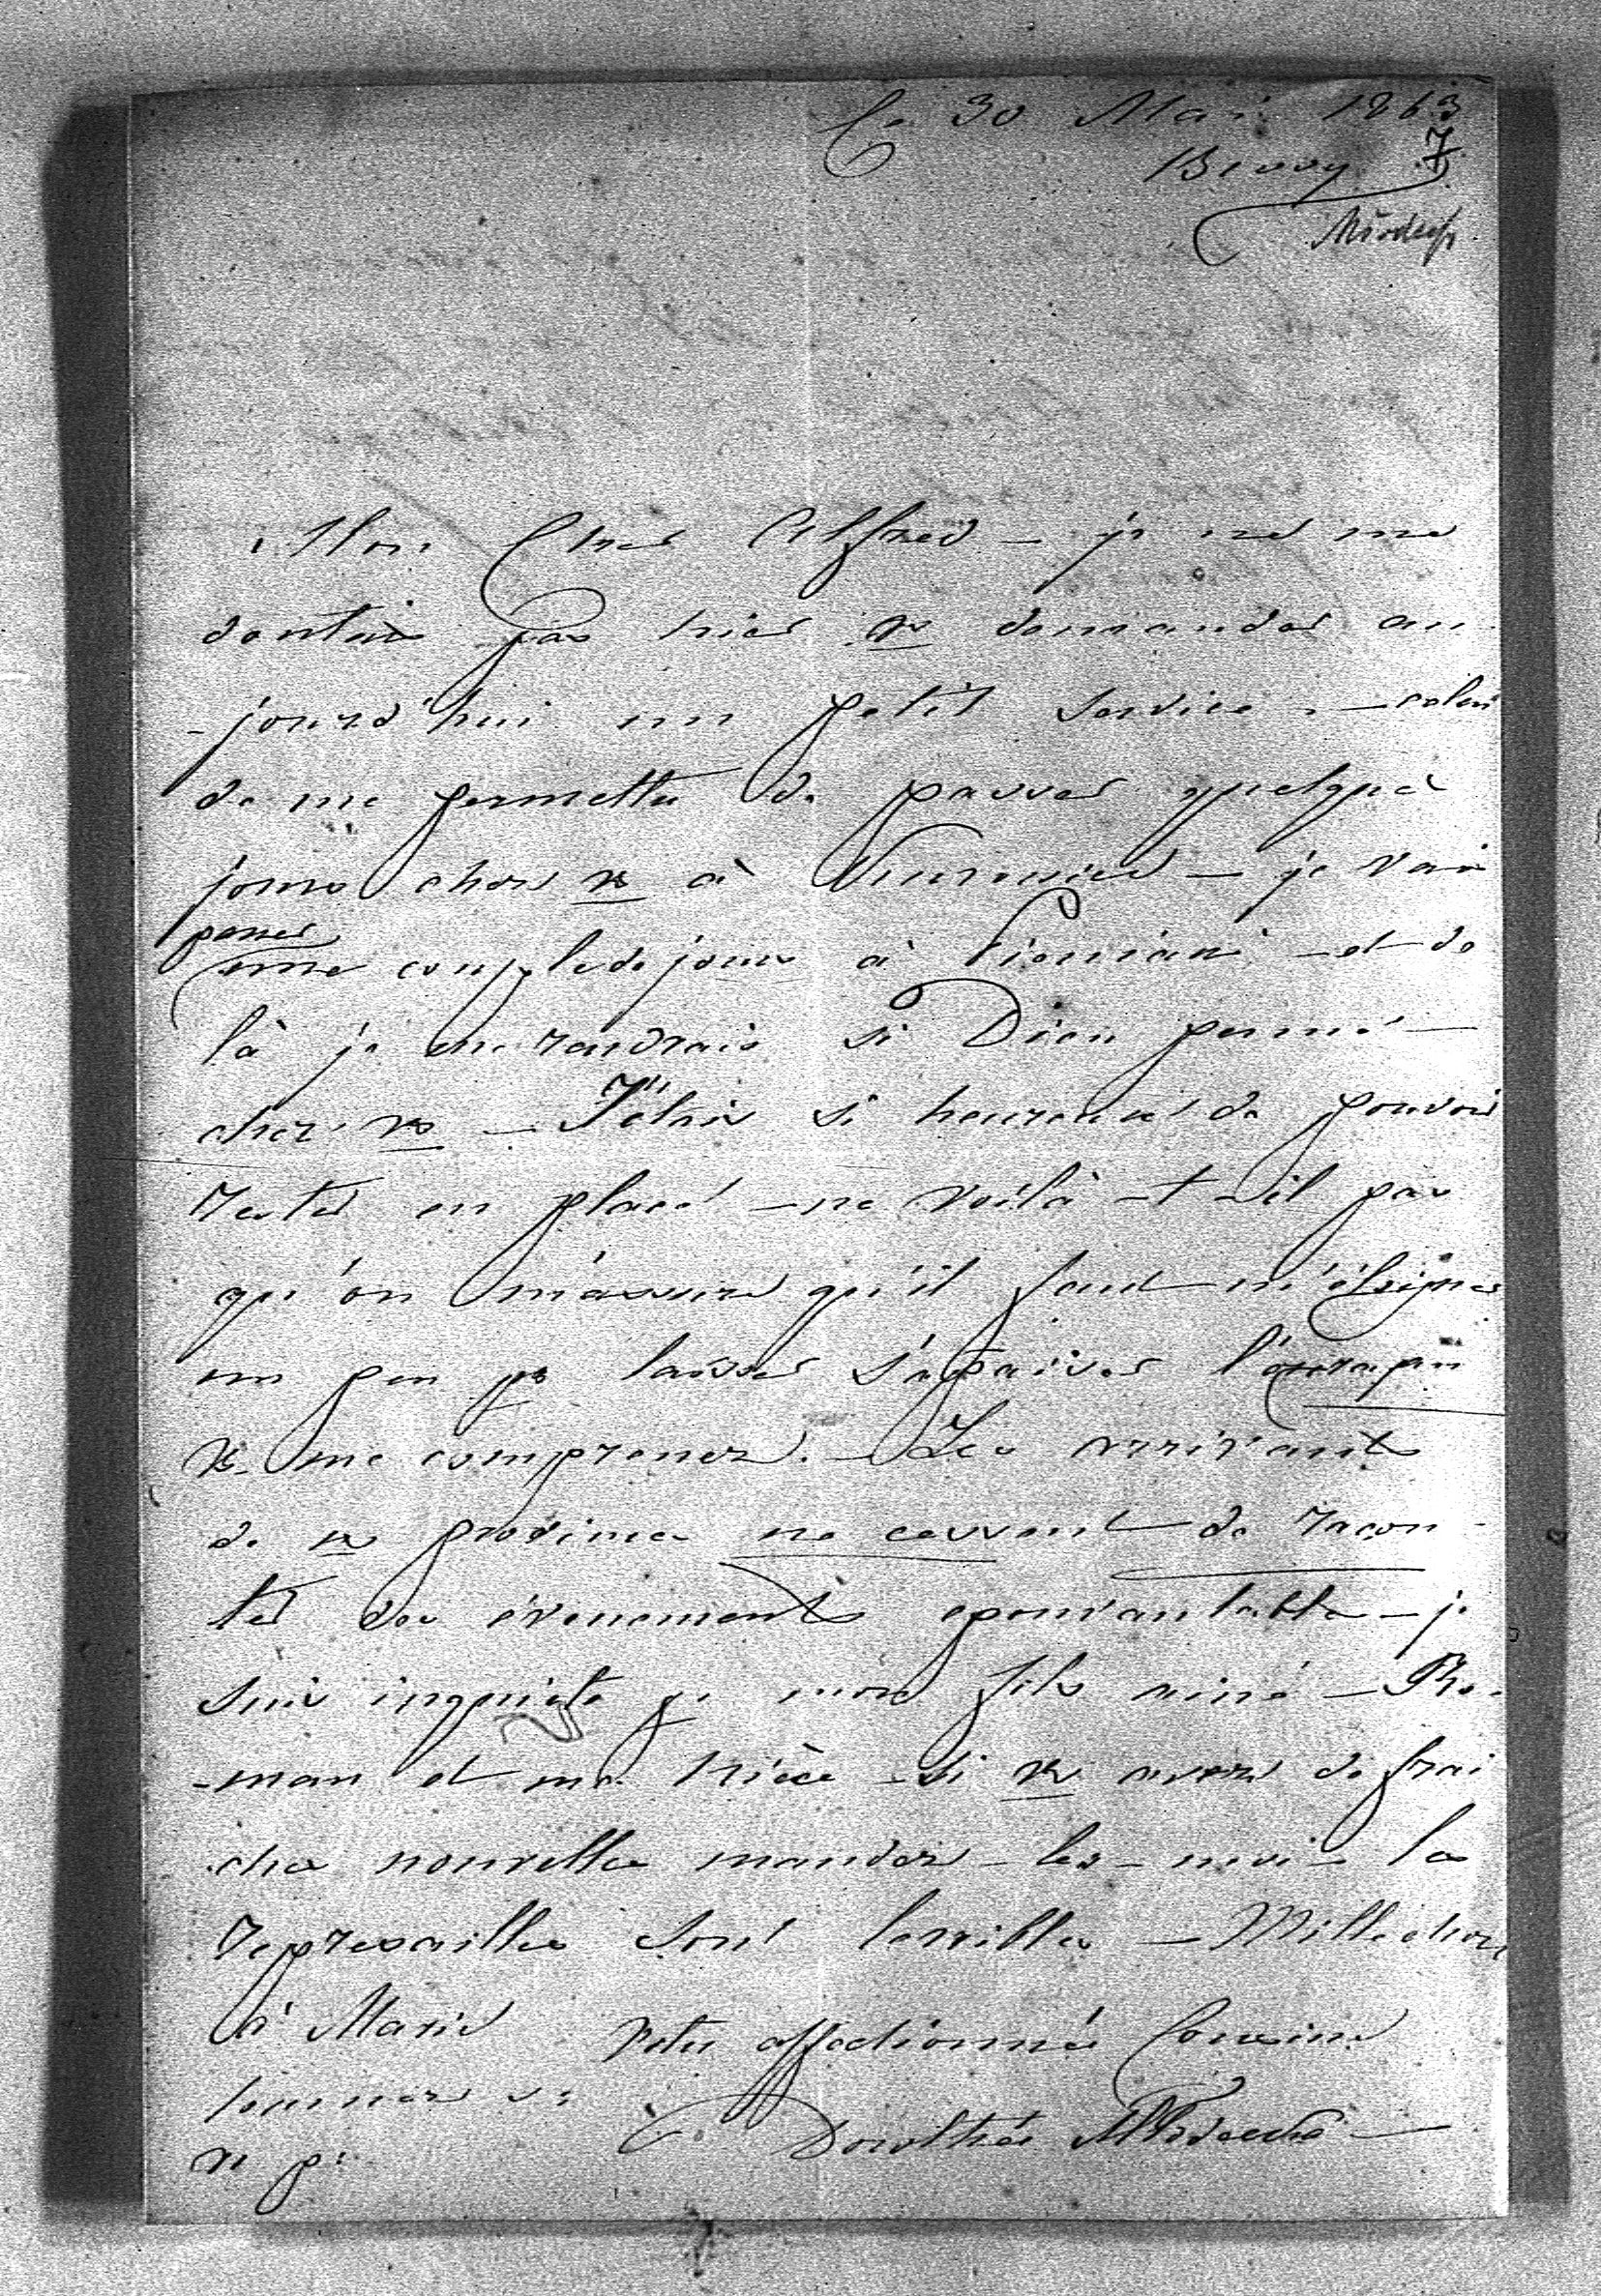 Ce 30 Mai 1863
7
Mon Cher Alfred — je ne me
doutais pas hier vs demander au
-jourd'hui un petit service. — celui
de me permettre de passer quelque
jours chez vs à — je vais
passer
une couple de jours à — et de
là je me rendrais si Dieu permé —
chez vs — J'étais si heureuse de pouvoir
rester en place — ne voilà-t-il pas
qu'on m'assure qu'il faut m'éloigner
un peu pr laisser s'apaiser l'
vs me comprenez. — Les arrivants
de vs province ne cessent de racon-
ter des évenements epouvantable — je
suis inquiete pr mon fils ainé — Ro-
-man et ma nièce — si vs avez de frai
ches nouvelles mandez-les-moi — les
represailles sont terribles — Mille chose
à Marie Votre affectionnée Cousine
tournez s:
v p: Dorothée